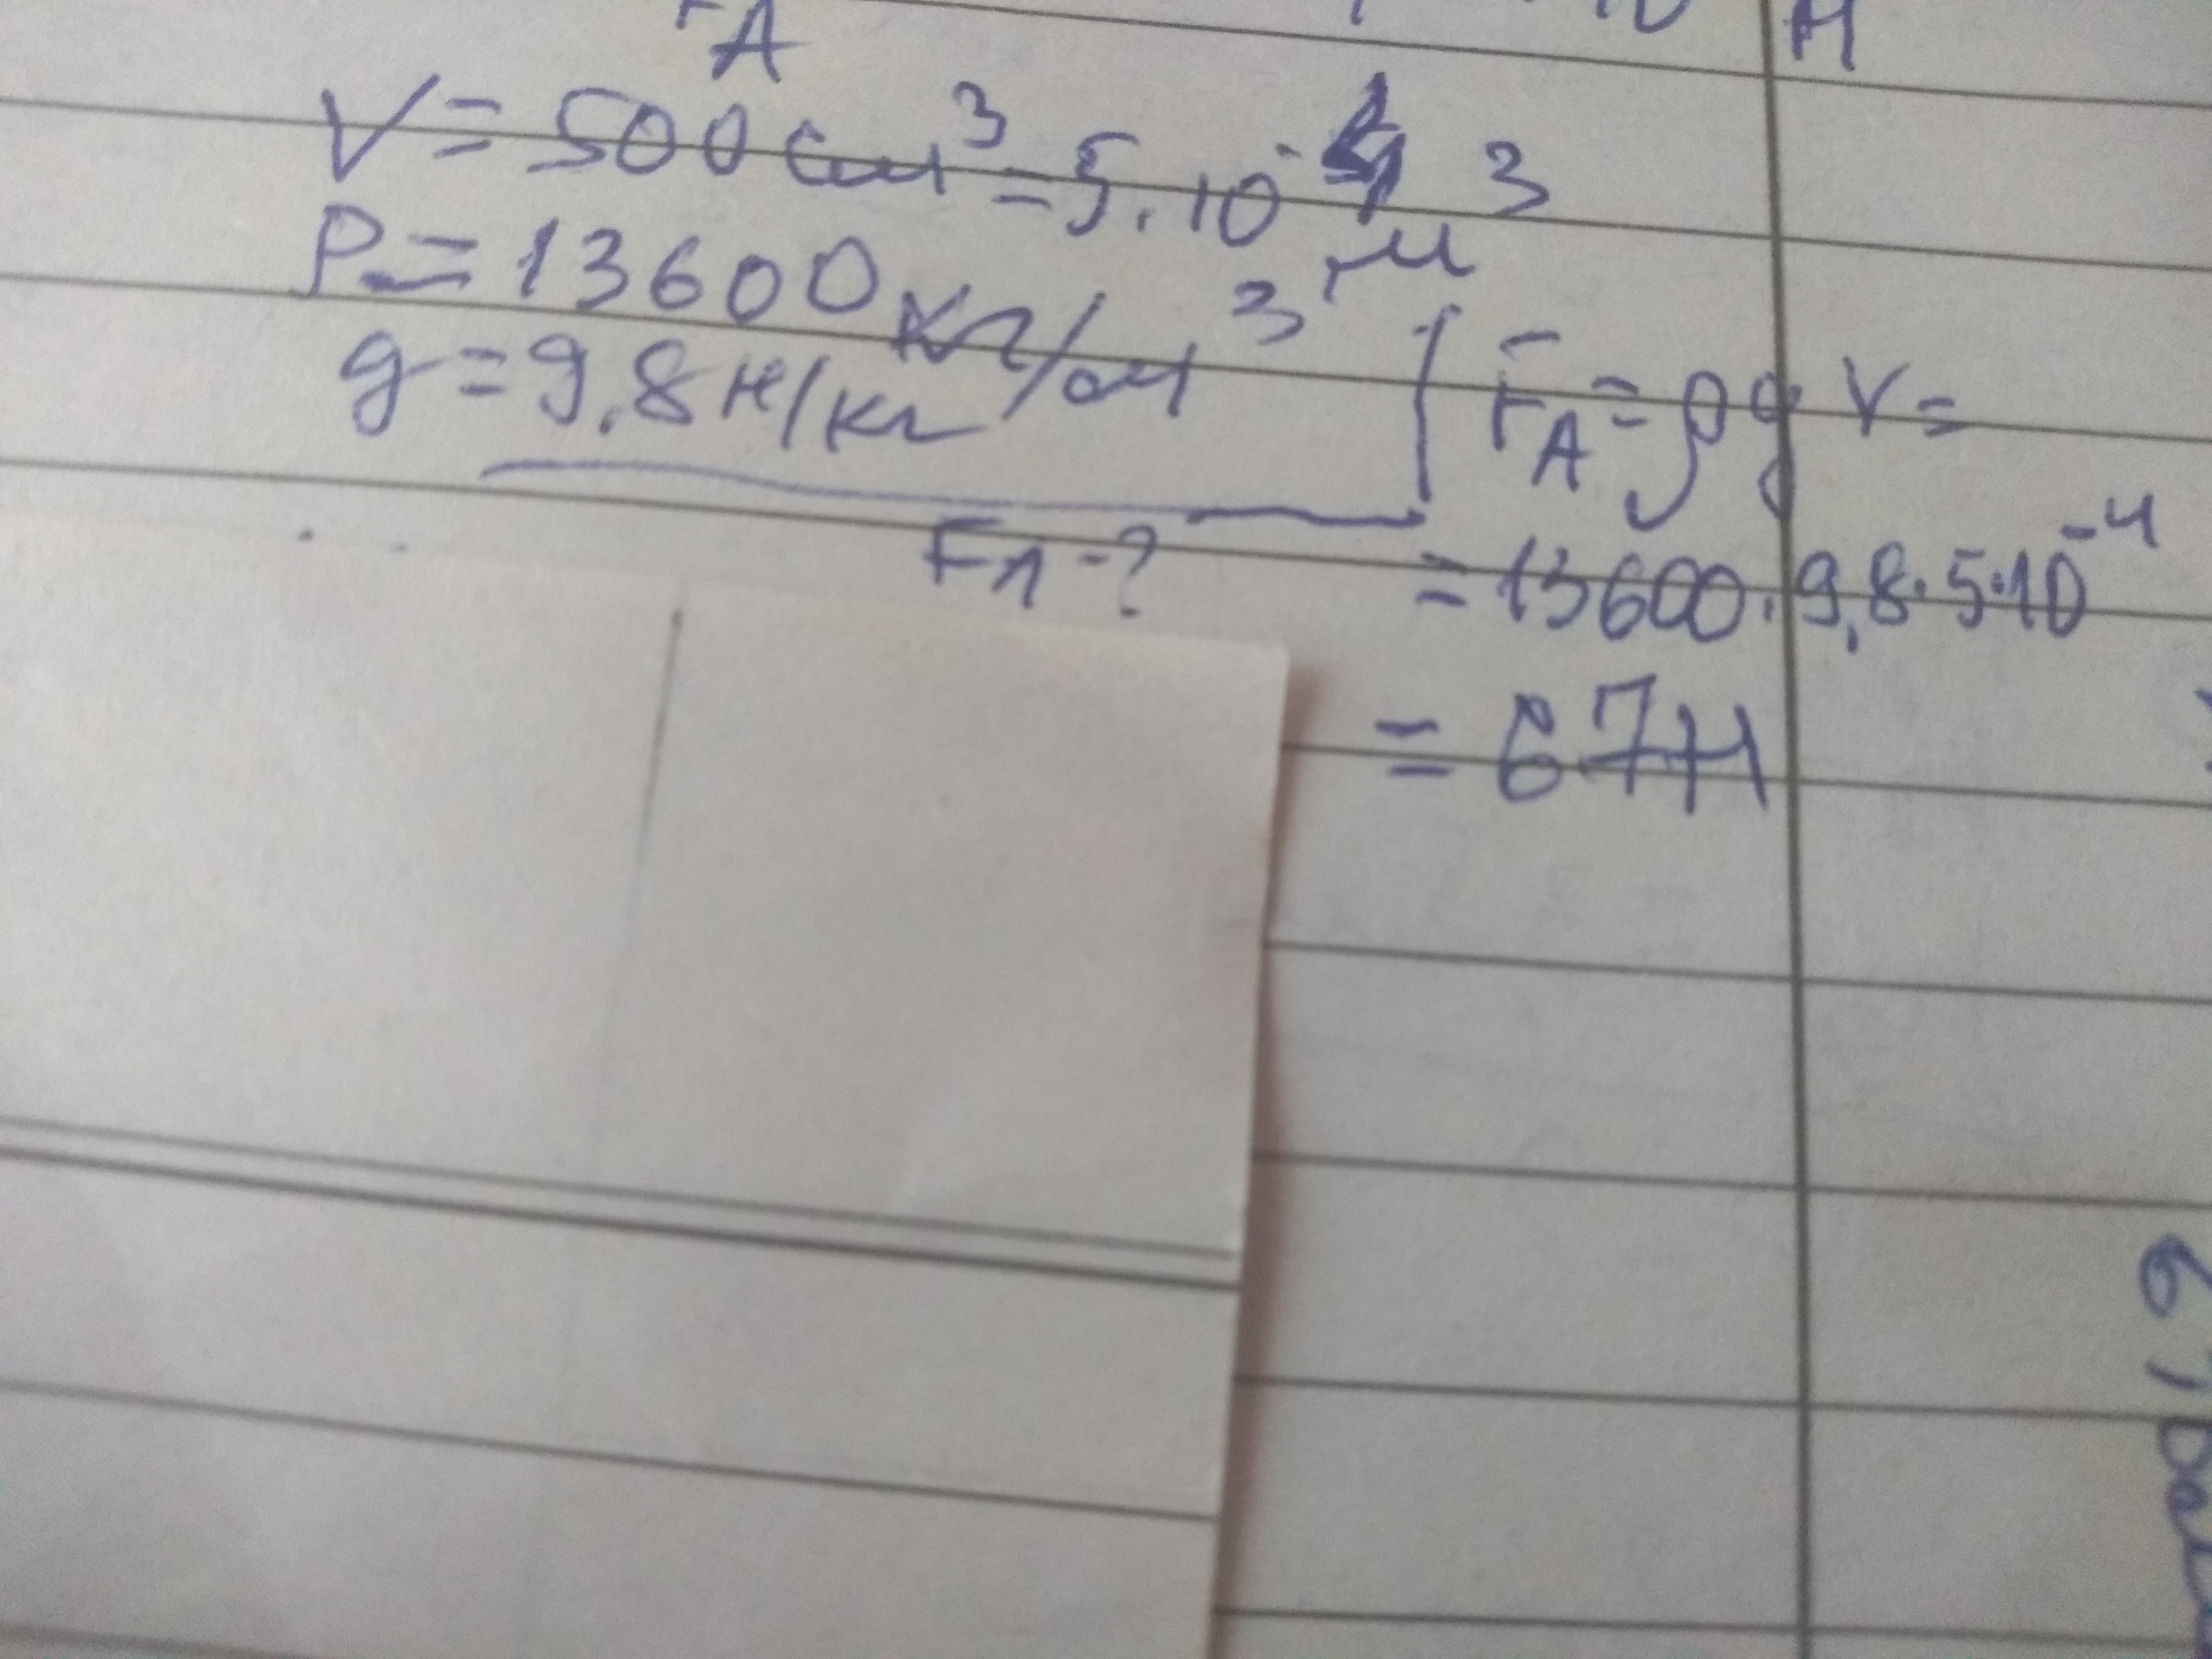 F_A
V = 500 см³ = 5·10⁻⁴ м³
ρ = 13600 кг/м³
g = 9,8 Н/кг
F_A = ρgV =
F_A - ?
= 13600·9,8·5·10⁻⁴
= 67Н